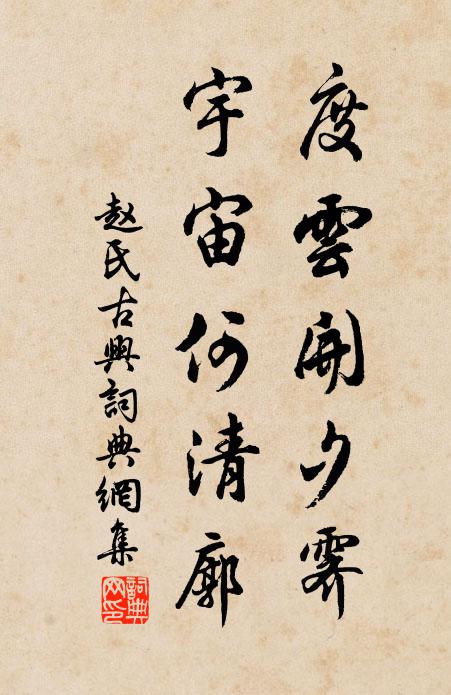 度雲開夕霽
宇宙何清廓
赵氏古興詞典網集
詞典
网印